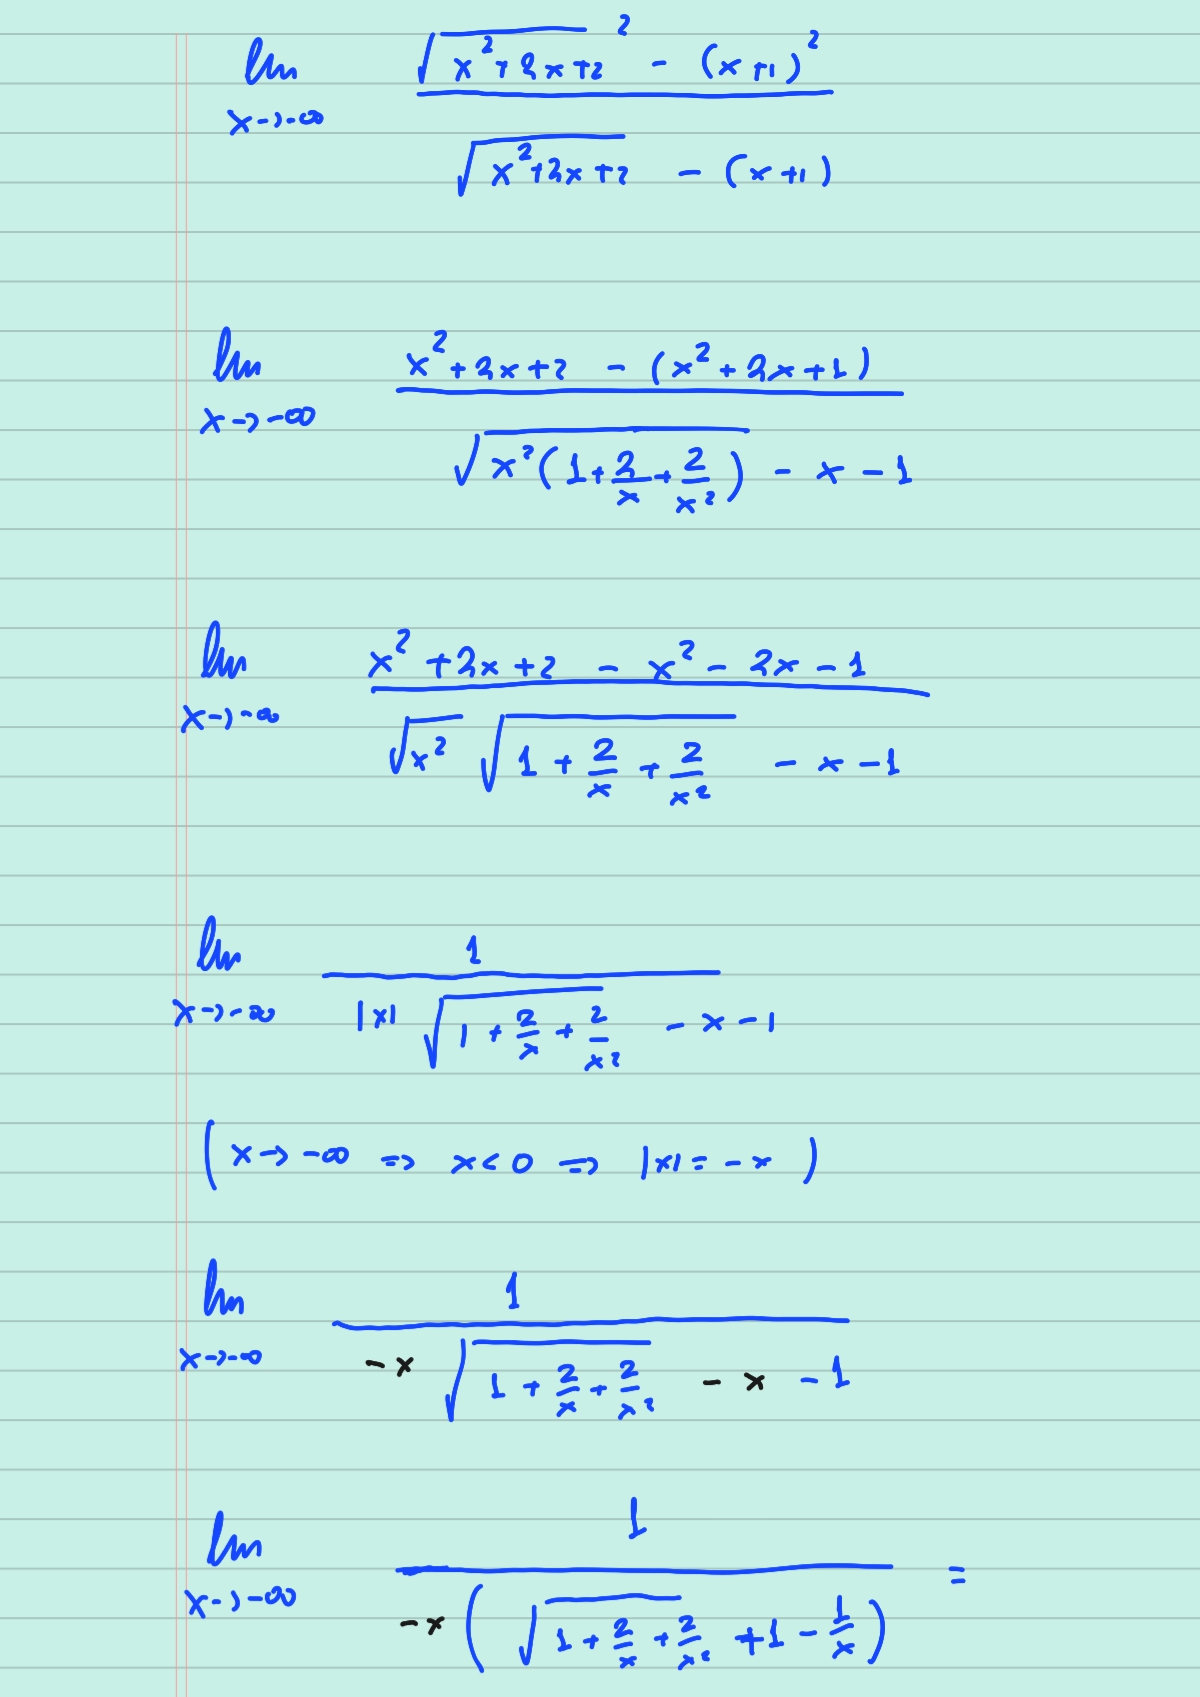 lim x→-∞ (√(x²+2x+2)² - (x+1)²) / (√(x²+2x+2) - (x+1))
lim x→-∞ (x²+2x+2 - (x²+2x+1)) / (√(x²(1+2/x+2/x²)) - x - 1)
lim x→-∞ (x²+2x+2 - x² - 2x - 1) / (√x² √(1+2/x+2/x²) - x - 1)
lim x→-∞ 1 / (|x| √(1+2/x+2/x²) - x - 1)
(x→-∞ => x<0 => |x| = -x)
lim x→-∞ 1 / (-x √(1+2/x+2/x²) - x - 1)
lim x→-∞ 1 / (-x(√(1+2/x+2/x²) + 1 - 1/x)) =